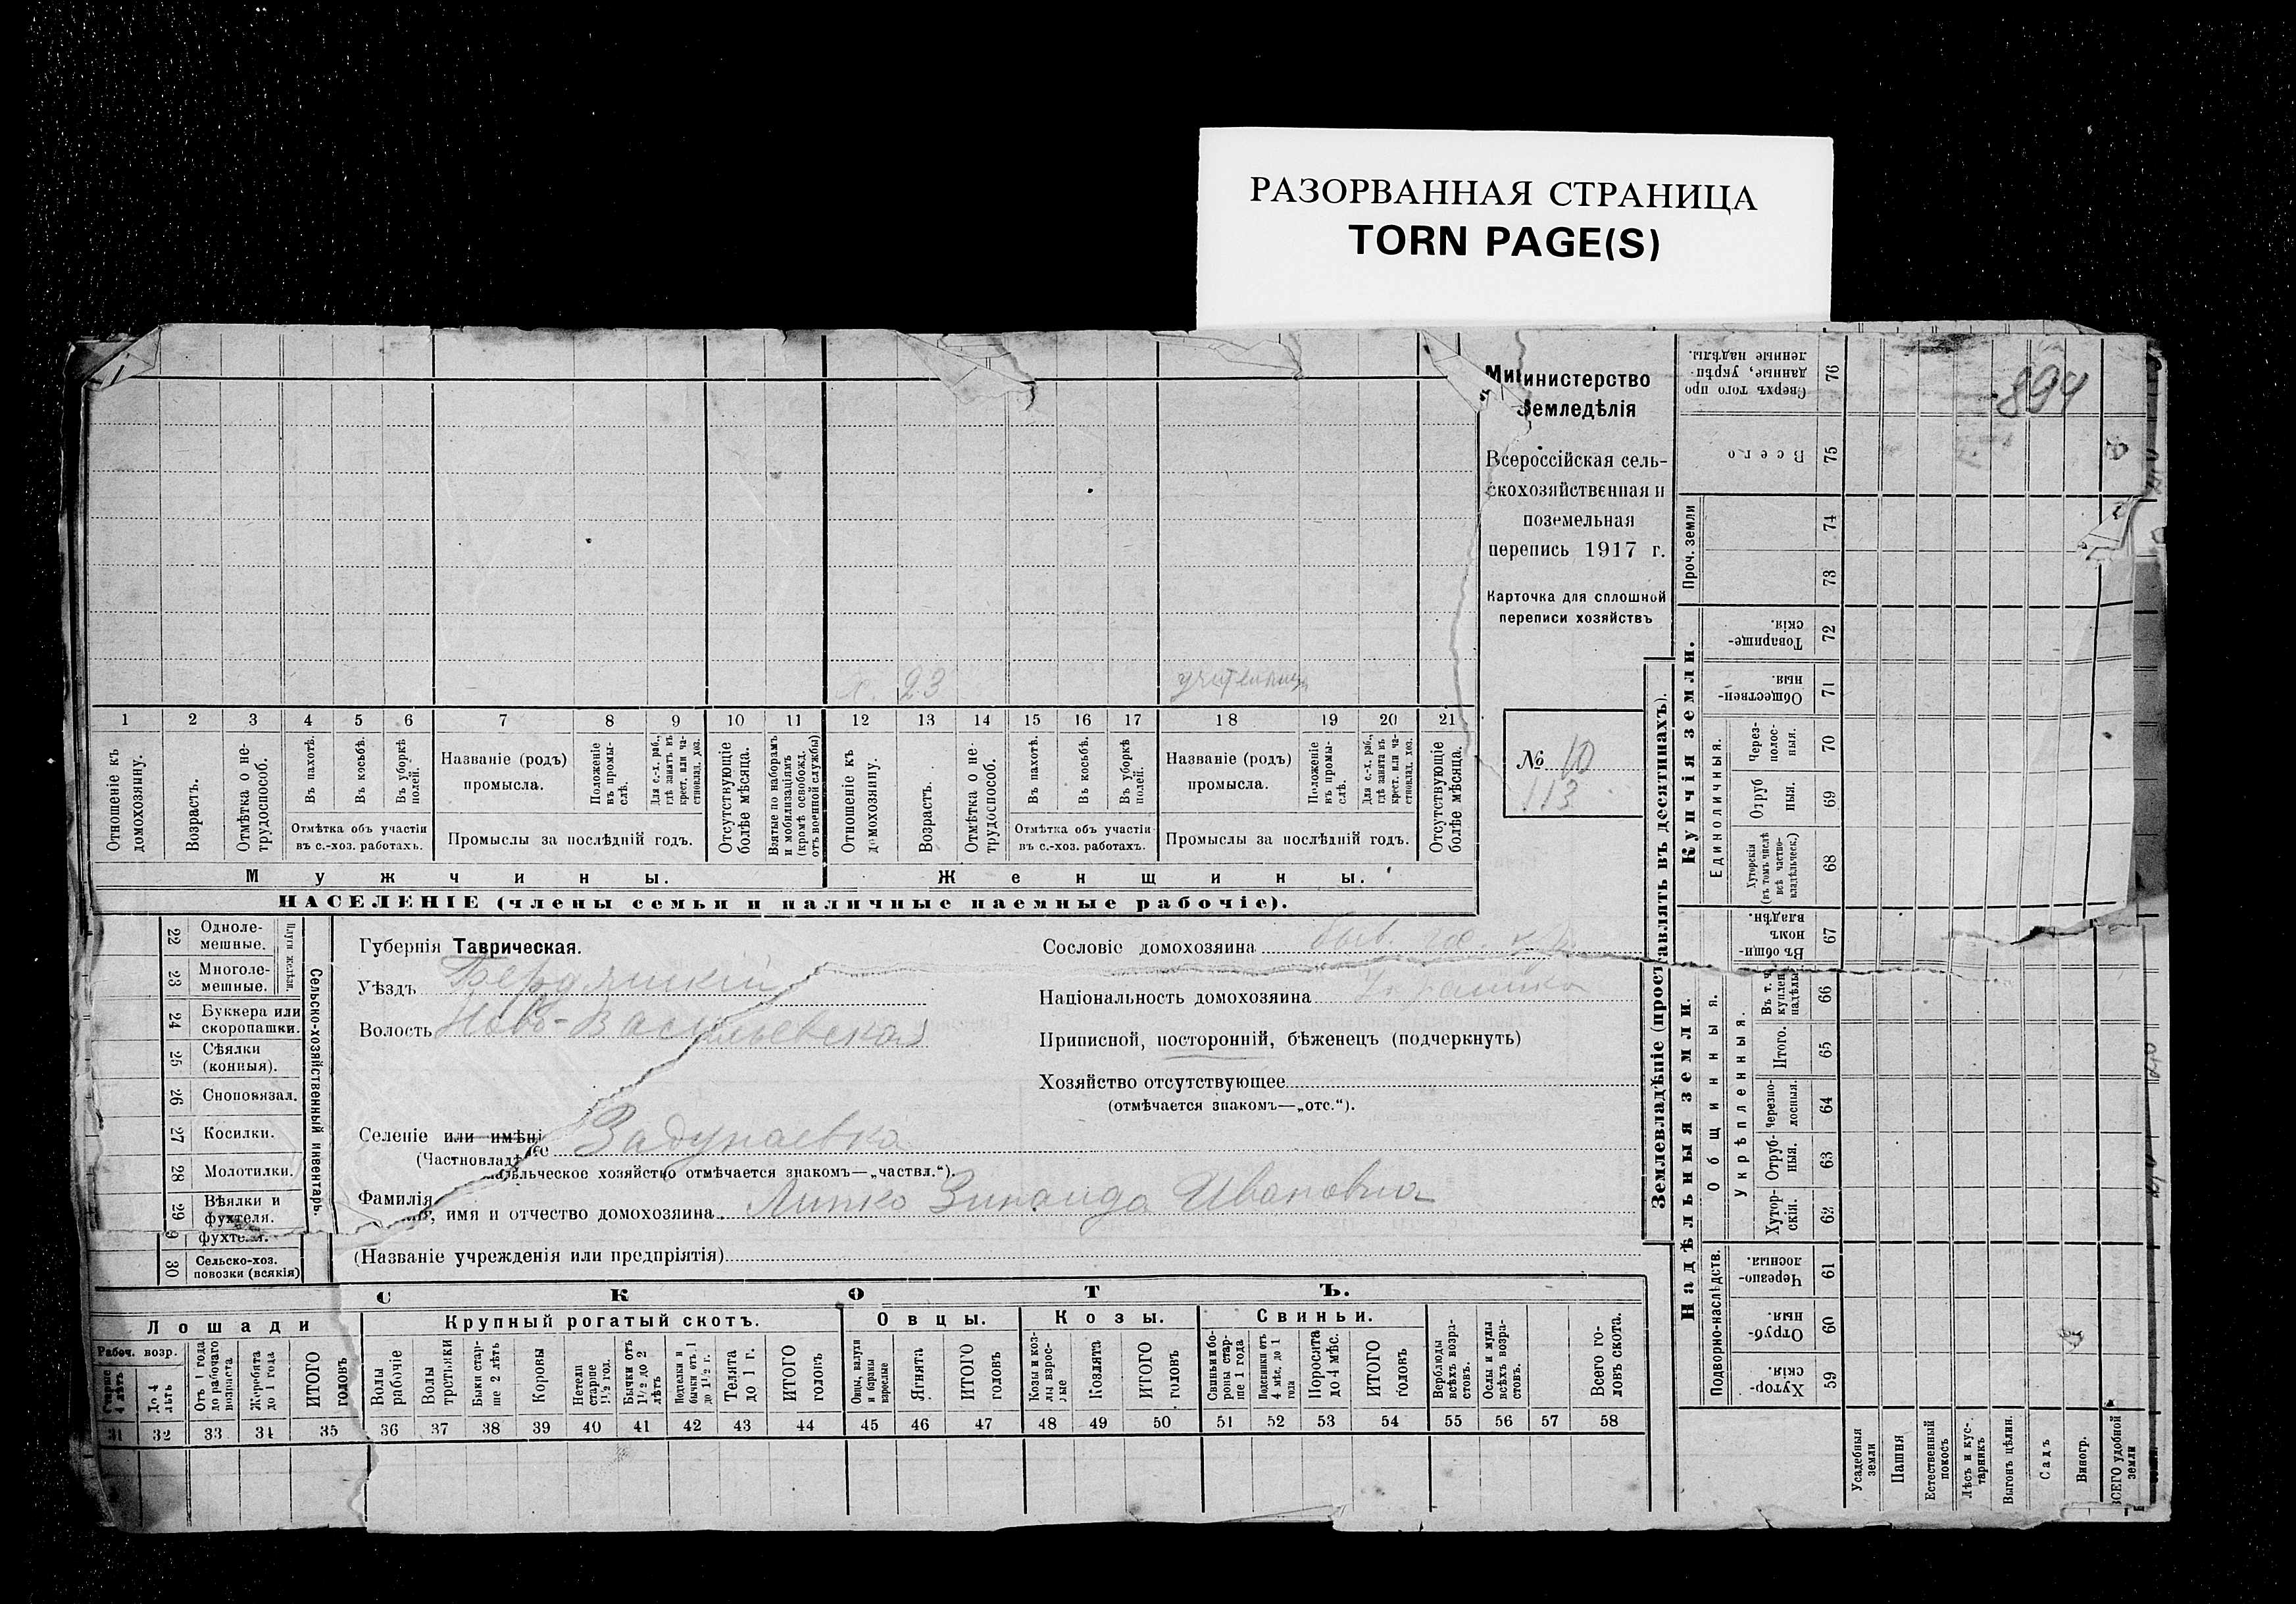 РАЗОРВАННАЯ СТРАНИЦА
TORN PAGE(S)
Министерство
Земледѣлія
Всероссійская сель-
скохозяйственная и
поземельная
перепись 1917 г.
Карточка для сплошной
переписи хозяйствъ
№ 10
113
894
х. 23 учительница
1 2 3 4 5 6 7 8 9 10 11 12 13 14 15 16 17 18 19 20 21
Отношеніе къ домохозяину.
Возрастъ.
Отмѣтка о не-трудоспособ.
Въ пахотѣ.
Въ косьбѣ.
Въ уборкѣ полей.
Отмѣтка объ участіи
въ с.-хоз. работахъ.
Названіе (родъ)
промысла.
Положеніе въ промы-слѣ.
Для с.-х. раб., гдѣ занятъ въ крест. или ча-стновлад. хоз.
Промыслы за послѣдній годъ.
Отсутствующіе болѣе мѣсяца.
Взятые по наборамъ и мобилизаціямъ (кромѣ освобожд. отъ военной службы)
Отношеніе къ домохозяину.
Возрастъ.
Отмѣтка о не-трудоспособ.
Въ пахотѣ.
Въ косьбѣ.
Въ уборкѣ полей.
Отмѣтка объ участіи
въ с.-хоз. работахъ.
Названіе (родъ)
промысла.
Положеніе въ промы-слѣ.
Для с.-х. раб., гдѣ занята въ крест. или ча-стновлад. хоз.
Промыслы за послѣдній годъ.
Отсутствующіе болѣе мѣсяца.
Мужчины. Женщины.
НАСЕЛЕНІЕ (члены семьи и наличные наемные рабочіе).
Сельско-хозяйственный инвентарь.
Плуги желѣзн.
22 Одноле-мешные.
23 Многоле-мешные.
24 Буккера или скоропашки.
25 Сѣялки (конныя).
26 Сноповязал.
27 Косилки.
28 Молотилки.
29 Вѣялки и фухтеля.
9 фухтеля.
30 Сельско-хоз. повозки (всякія)
Губернія Таврическая.
Уѣздъ Бердянскій
Волость Ново-Васильевская
Селеніе или имѣніе Задунаевка
(Частновладѣльческое хозяйство отмѣчается знакомъ—„частвл.“).
Фамилія, имя и отчество домохозяина Липко Зинаида Ивановна
(Названіе учрежденія или предпріятія)
Сословіе домохозяина быв.
Національность домохозяина
Приписной, посторонній, бѣженецъ (подчеркнуть)
Хозяйство отсутствующее
(отмѣчается знакомъ—„отс.“).
СКОТЪ.
Лошади Крупный рогатый скотъ. Овцы. Козы. Свиньи.
Рабоч. возр.
Старше 4 лѣтъ
До 4 лѣтъ
Отъ 1 года до рабочаго возраста
Жеребята до 1 года
ИТОГО головъ
Волы рабочіе
Волы третьяки
Быки стар-ше 2 лѣтъ
Коровы
Нетели старше 1½ год.
Бычки отъ 1½ до 2 лѣтъ
Подтелки и бычки отъ 1 до 1½ г.
Телята до 1 г.
ИТОГО головъ
Овцы, валухи и бараны взрослые
Ягнята
ИТОГО головъ
Козы и коз-лы взрос-лые
Козлята
ИТОГО головъ
Свиньи и бо-ровы стар-ше 1 года
Подсвинки отъ 4 мѣс. до 1 года
Поросята до 4 мѣс.
ИТОГО головъ
Верблюды всѣхъ возра-стовъ.
Ослы и мулы всѣхъ возра-стовъ.
Всего го-ловъ скота.
31 32 33 34 35 36 37 38 39 40 41 42 43 44 45 46 47 48 49 50 51 52 53 54 55 56 57 58
Землевладѣніе (проставлять въ десятинахъ).
Надѣльныя земли.
Купчія земли.
Проч. земли
Подворно-наслѣдств.
Общинныя.
Укрѣпленныя.
Единоличныя.
76 Сверхъ того про данные, укрѣп-ленные надѣлы.
75 Всего
74
73
72 Товарище-скія.
71 Обществен-ныя.
70 Через-полос-ныя.
69 Отруб ныя.
68 Хуторскія (въ томъ числѣ всѣ частно-владѣльческ.)
67 Въ общин-номъ владѣн.
66 Въ т. ч. куплен. надѣлы
65 Итого.
64 Черезпо-лосныя.
63 Отруб-ныя.
62 Хутор-скія.
61 Черезпо-лосныя
60 Отруб-ныя.
59 Хутор-скія.
Усадебныя земли
Пашня
Естественный покосъ
Лѣсъ и кус-тарникъ
Выгонъ цѣлин.
Садъ
Виногр.
ВСЕГО удобной земли